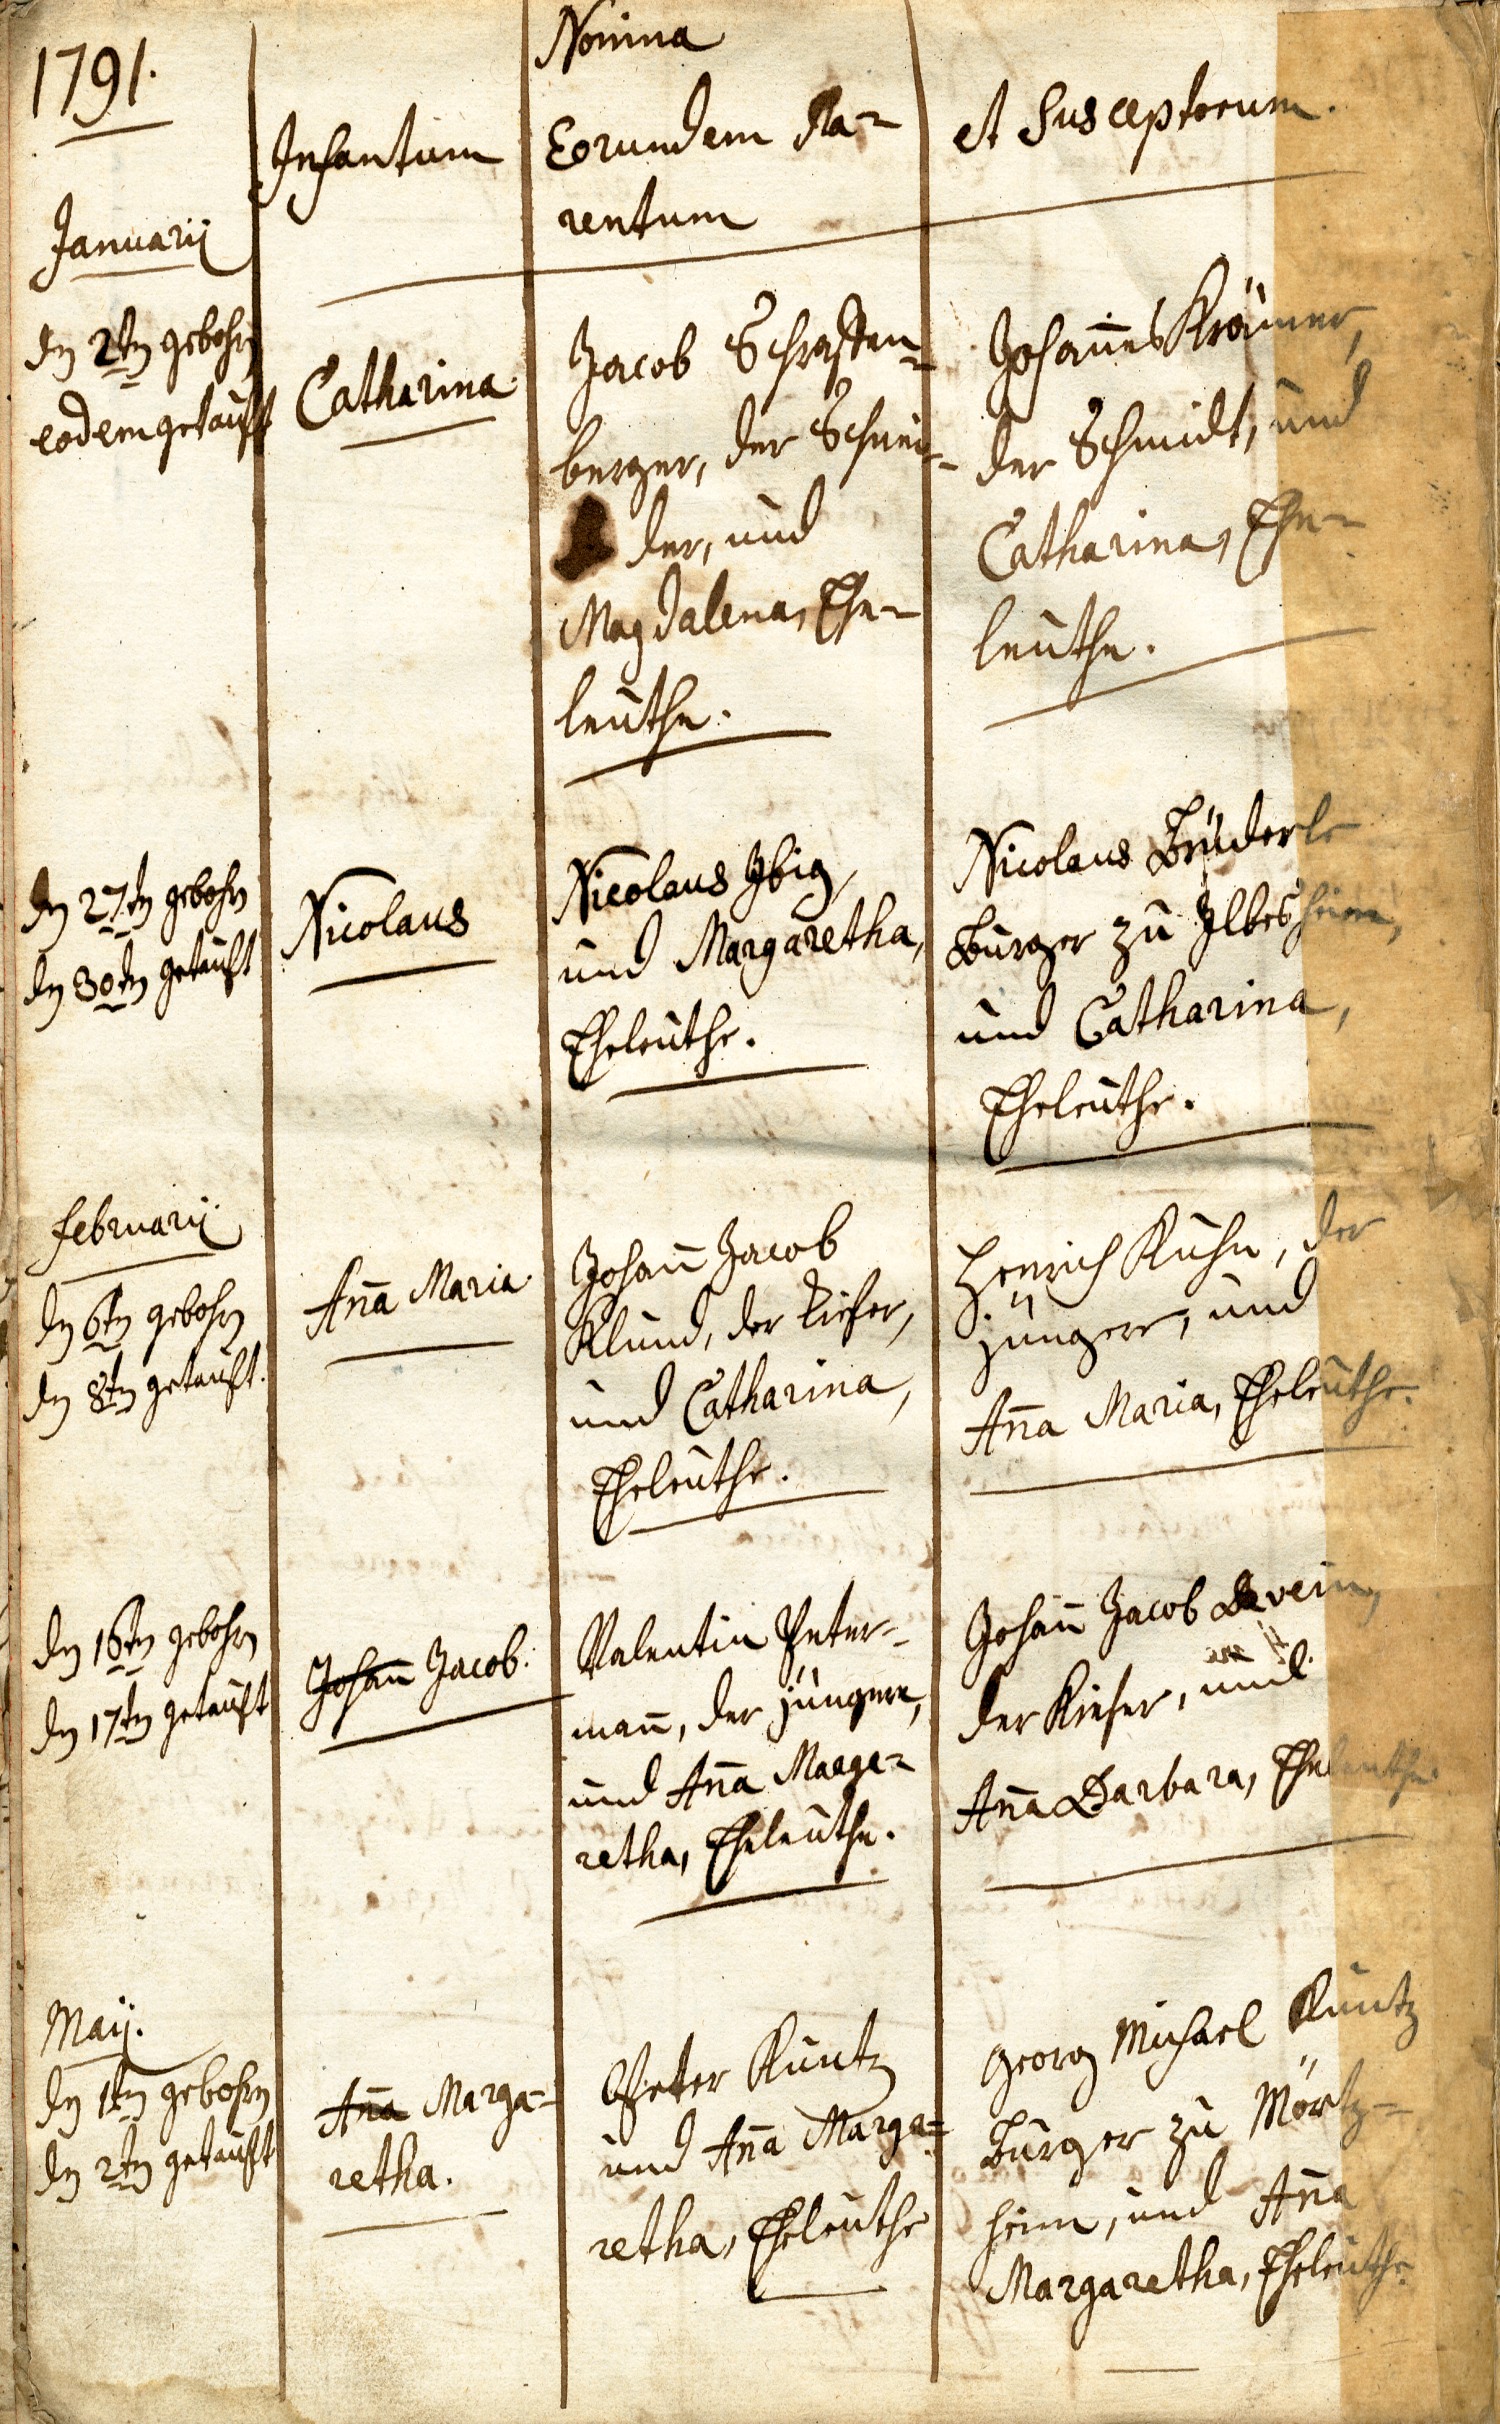 1791.
Nomina
Infantum
Eorundem Pa-
rentum
et Susceptorum.
Januarij
dn 2tn gebohrn
eodem getauft
Catharina
Jacob
berger, der Schnei-
der, und
Magdalena, Ehe-
leuthe.
Johannes Krämer,
der Schmidt, und
Catharina, Ehe-
leuthe.
dn 27tn gebohrn
dn 30tn getauft
Nicolaus
Nicolaus Jbig,
und Margaretha,
Eheleuthe.
Nicolaus Brüderle
Burger zu Jlbesheim,
und Catharina,
Eheleuthe.
Februarij
dn 6tn gebohrn
dn 8tn getauft.
Ana Maria
Johan Jacob
Klund, der Kiefer,
und Catharina,
Eheleuthe.
Henrich Kuhn, der
jüngere, und
Ana Maria, Eheleuthe.
dn 16tn gebohrn
dn 17tn getauft
Johan Jacob.
Valentin Peter-
man, der jüngere,
und Ana Marga-
retha, Eheleuthe.
Johan Jacob
der Kiefer, und
Ana Barbara, Eheleuthe.
Maij.
dn 1tn gebohrn
dn 2tn getauft
Ana Marga-
retha.
Peter Kuntz
und Ana Marga-
retha, Eheleuthe
Georg Michael Kuntz
Burger zu Mörtz-
heim, und Ana
Margaretha, Eheleuthe.